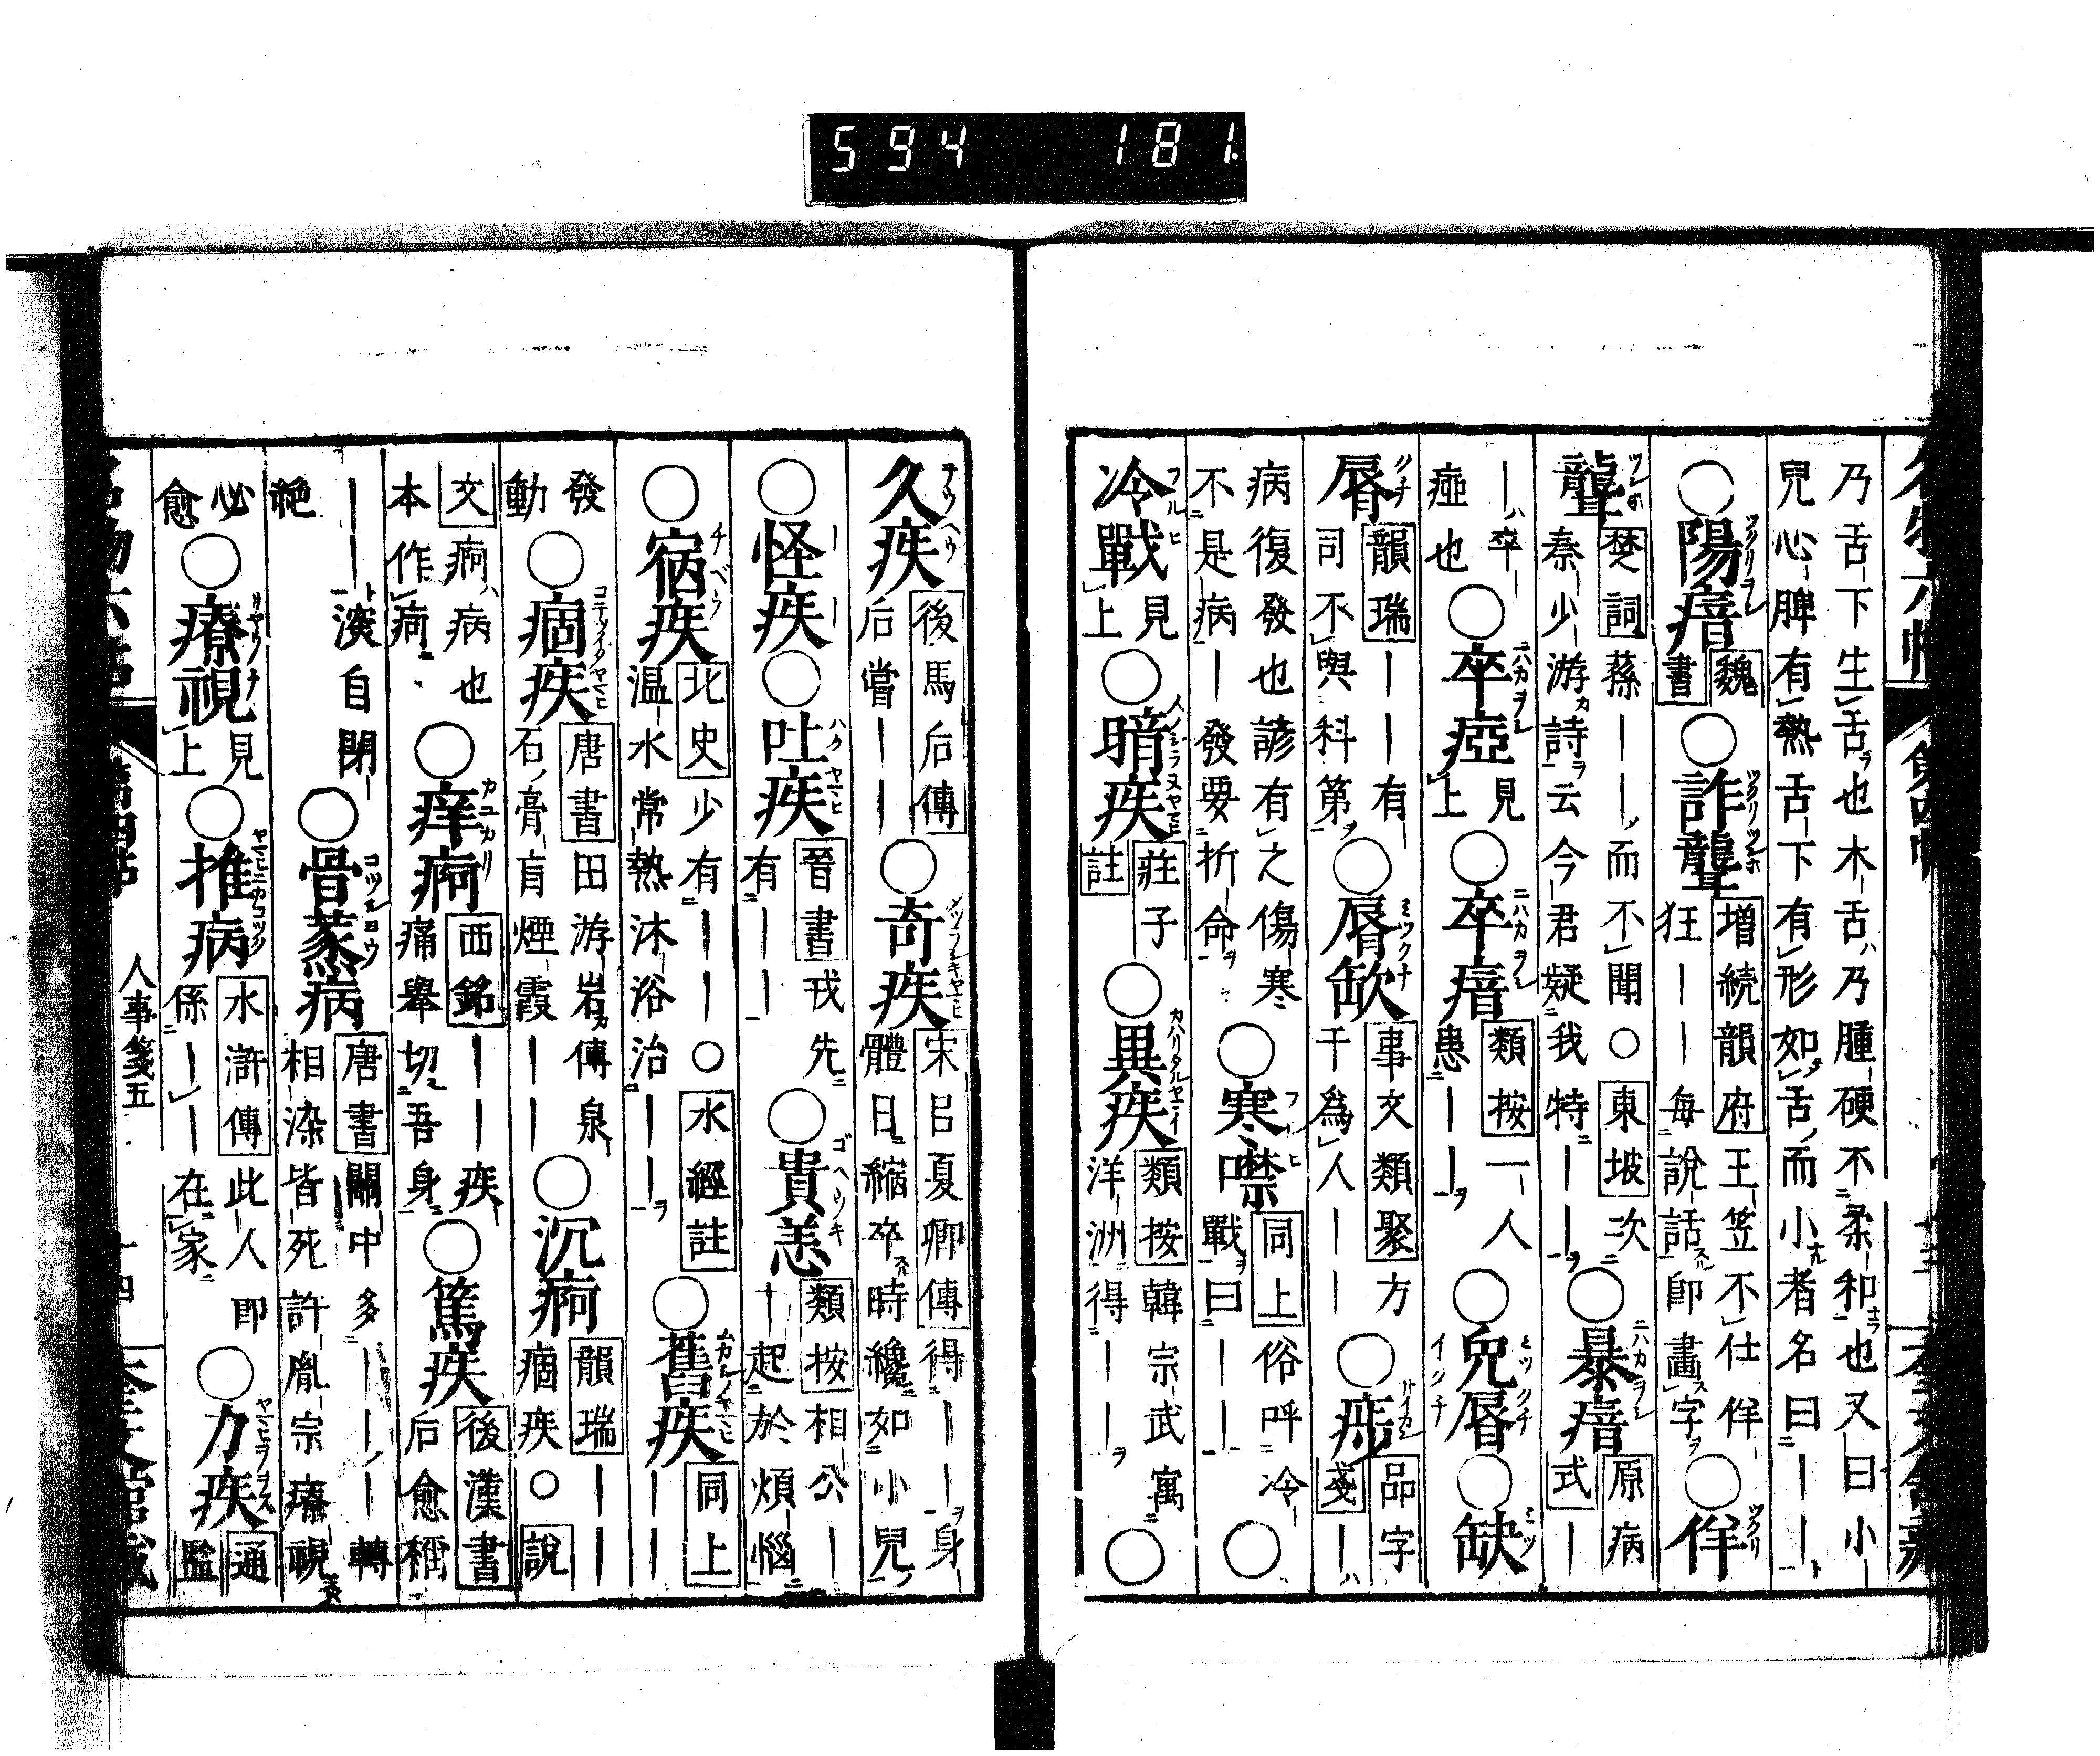 594 181.
乃舌下生舌也木舌乃腫硬不柔和也又曰小
兒心脾有熱舌下有形如舌而小者名曰――
○陽瘖 魏書 ○詐聾 增続韻府 王笠不仕佯狂――每說話即畫字 ○佯
聾 焚詞 蓀――而不聞○東坡次秦少游詩云今君疑我特―― ○暴瘖 原病式 ―
―卒瘂也 ○卒瘂 見上 ○卒瘖 類按 一人患―― ○兔脣 ○缺
脣 韻瑞 ――有司不與科第 ○脣缺 事文類聚 方干為人―― ○痣 品字箋 ―
病復發也諺有之傷寒不是病―發要折命 ○寒噤 同上 俗呼冷戰曰―― ○
冷戰 見上 ○暗疾 莊子註 ○異疾 類按 韓宗武寓洋洲得―― ○
久疾 後馬后傳 后嘗―― ○奇疾 宋呂夏卿傳 得――身體日縮卒時纔如小兒
○怪疾 ○吐疾 晉書 戎先有―― ○貴恙 類按 相公―十起於煩惱
○宿疾 北史 少有――○水經註 温水常熱沐浴治―― ○舊疾 同上 ――
發動 ○痼疾 唐書 田游岩傳泉石膏肓煙霞―― ○沉痾 韻瑞 ――痼疾○說
文 痾病也本作疴 ○痒痾 西銘 ――疾痛舉切吾身 ○篤疾 後漢書 后愈稱
――淡自閉絕 ○骨蒸病 唐書 關中多―――轉相染皆死許胤宗療視
必愈 ○療視 見上 ○推病 水滸傳 此人即係――在家 ○力疾 通鑑
人事箋五